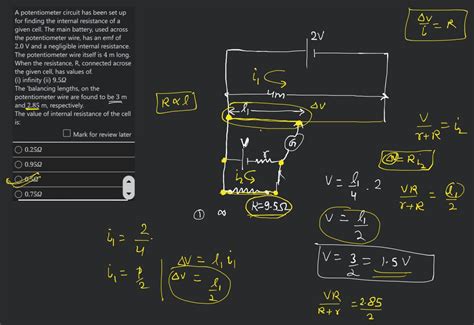 A potentiometer circuit has been set up
for finding the internal resistance of a
given cell. The main battery, used across
the potentiometer wire, has an emf of
2.0 V and a negligible internal resistance.
The potentiometer wire itself is 4 m long.
When the resistance, R, connected across
the given cell, has values of.
(i) infinity (ii) 9.5Ω
The 'balancing lengths, on the
potentiometer wire are found to be 3 m
and 2.85 m, respectively.
The value of internal resistance of the cell
is:
Mark for review later
0.25Ω
0.95Ω
0.5Ω
0.75Ω
2V
i₁
4m
R ∝ l
l₁
ΔV
G
V
r
i₂
R=9.5Ω
① ∞
ΔV/i = R
V/(r+R) = i₂
ΔV = R i₂
V = l₁/4 · 2
VR/(r+R) = l₁/2
V = l₁/2
V = 3/2 = 1.5V
VR/(R+r) = 2.85/2
i₁ = 2/4
i₁ = 1/2
ΔV = l₁ i₁
ΔV = l₁/2